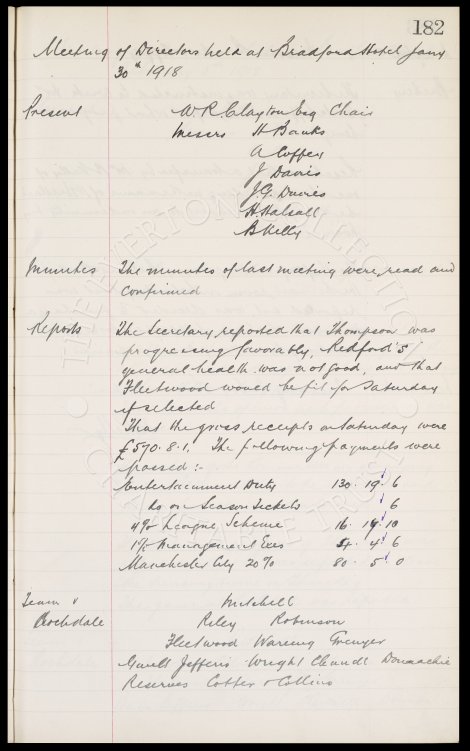 182
Meeting of Directors held at Bradford Hotel Jany
30th 1918
Present W.R. Clayton Esq Chair
Messrs H Banks
A Coffey
J Davies
J.G. Davies
H. Halsall
B Kelly
Minutes The minutes of last meeting were read and
confirmed
Reports The Secretary reported that Thompson was
progressing favorably, Redford's
general health was not good, and that
Fleetwood would be fit for Saturday
if selected
That the gross receipts on Saturday were
£570.8.1. The following payments were
passed :-
Entertainment Duty 130. 19. 6
do on Season Tickets 6
4% League Scheme 16. 14. 10
1% Management Exes 4. 4. 6
Manchester City 20% 80. 5. 0
Team v Mitchell
Rochdale Riley Robinson
Fleetwood Wareing Grenyer
Gault Jefferis Wright Clennell Donnachie
Reserves Coffey & Collins
THE EVERTON COLLECTION
CHARITABLE TRUST